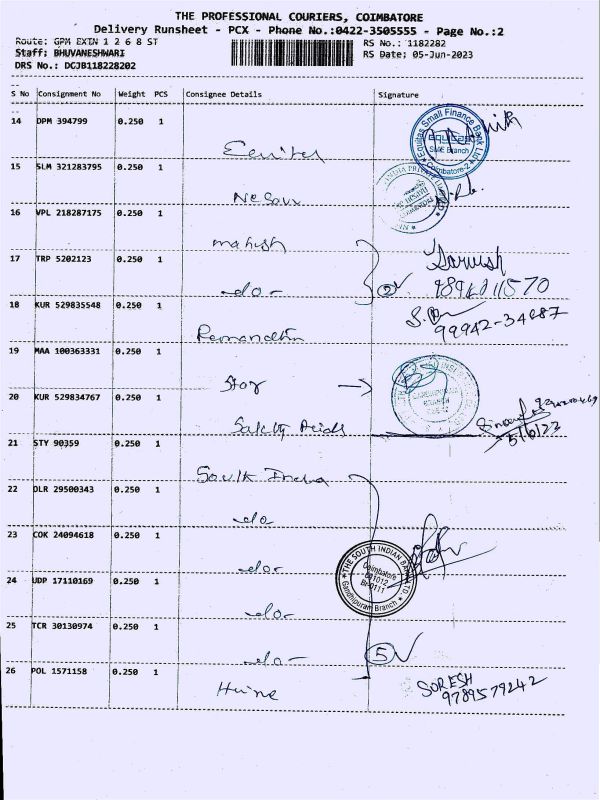 THE PROFESSIONAL COURIERS, COIMBATORE
Delivery Runsheet - PCX - Phone No.:0422-3505555 - Page No.:2
Route: GPM EXTN 1 2 6 8 ST
RS No.: 1182282
Staff: BHUVANESHWARI
RS Date: 05-Jun-2023
DRS No.: DCJB118228202
S No Consignment No Weight PCS Consignee Details Signature
14 DPM 394799 0.250 1
Equitas Small Finance Bank Ltd
SME Branch
Coimbatore-2
15 SLM 321283795 0.250 1
16 VPL 218287175 0.250 1
mahesh
17 TRP 5202123 0.250 1
-do-
2
18 KUR 529835548 0.250 1
99942-34687
19 MAA 100363331 0.250 1
Star
20 KUR 529834767 0.250 1
5/6/23
21 STY 90359 0.250 1
South India
22 DLR 29500343 0.250 1
do
23 COK 24094618 0.250 1
-do-
THE SOUTH INDIAN BANK LTD.
Coimbatore
Gandhipuram Branch
24 UDP 17110169 0.250 1
-do-
25 TCR 30130974 0.250 1
-do-
5
26 POL 1571158 0.250 1
SURESH
9789579242